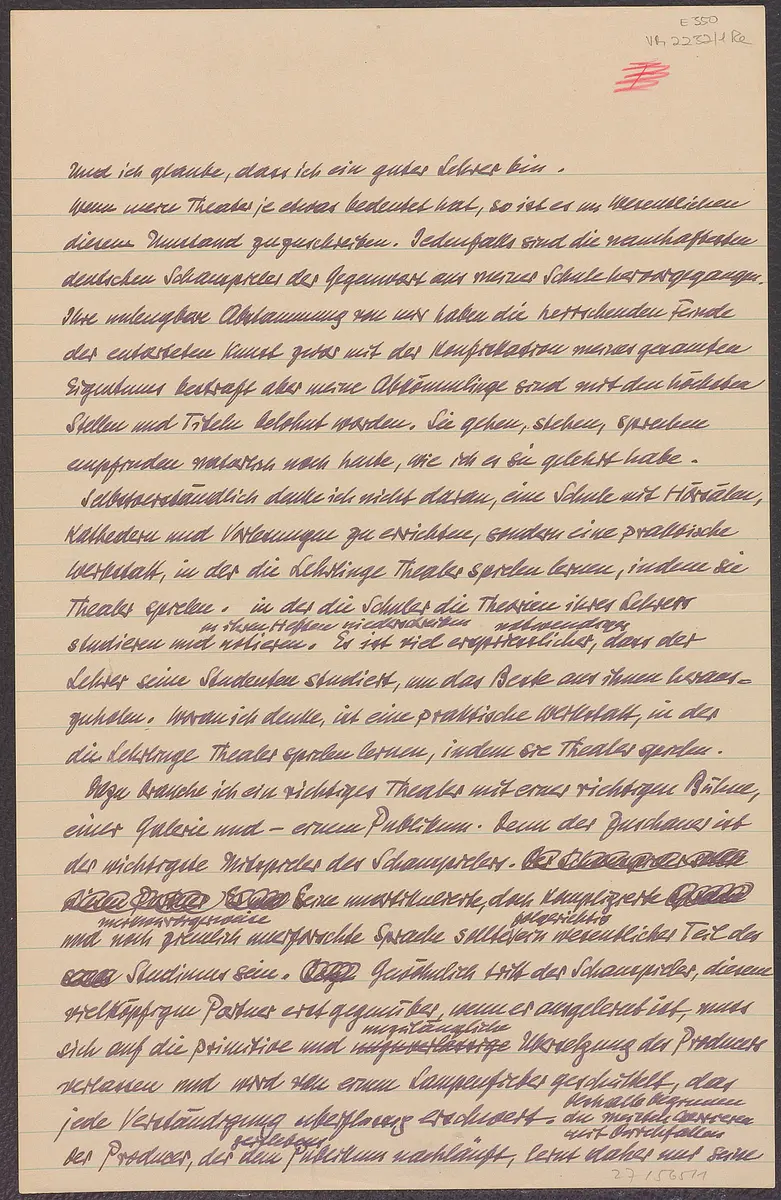 E 350
VR 2232/1 Re
Und ich glaube, dass ich ein guter Lehrer bin.
Wenn mein Theater je etwas bedeutet hat, so ist es im Wesentlichen
diesem Umstand zuzuschreiben. Jedenfalls sind die namhaftesten
deutschen Schauspieler der Gegenwart aus meiner Schule hervorgegangen.
Ihre unleugbare Abstammung von mir haben die herrschenden Feinde
der entarteten Kunst zwar mit der Konfiskation meines gesamten
Eigentums bestraft aber meine Abkömmlinge sind mit den höchsten
Stellen und Titeln belohnt worden. Sie gehen, stehen, sprechen
empfinden natürlich noch heute, wie ich es sie gelehrt habe.
Selbstverständlich denke ich nicht daran, eine Schule mit Hörsälen,
Kathedern und Vorlesungen zu errichten, sondern eine praktische
Werkstatt, in der die Lehrlinge Theater spielen lernen, indem sie
Theater spielen. in der die Schüler die Theorien ihres Lehrers
in ihren Heften niederschreiben notwendig
studieren und notieren. Es ist viel erspriesslicher, dass der
Lehrer seine Studenten studiert, um das Beste aus ihnen heraus=
zuholen. Woran ich denke, ist eine praktische Werkstatt, in der
die Lehrlinge Theater spielen lernen, indem sie Theater spielen.
Dazu brauche ich ein richtiges Theater mit einer richtigen Bühne,
einer Galerie und – einem Publikum. Denn der Zuschauer ist
der wichtigste Mitspieler des Schauspielers.
Seine unartikulierte, doch komplizierte
merkwürdigerweise folgerichtig
und noch ziemlich unerforschte Sprache sollte ein wesentlicher Teil des
Studiums sein. Gewöhnlich tritt der Schauspieler, diesem
vielköpfigen Partner erst gegenüber, wenn er ausgelernt ist, muss
unzulängliche
sich auf die primitive und unzuverlässige Übersetzung des Producers
verlassen und wird von einem Lampenfieber geschüttelt, das
jede Verständigung erschwert. deshalb beginnen
die meisten Carrieren
mit Durchfällen
der Producer, der dem Publikum nachläuft, lernt daher nur seine
27/5651/1